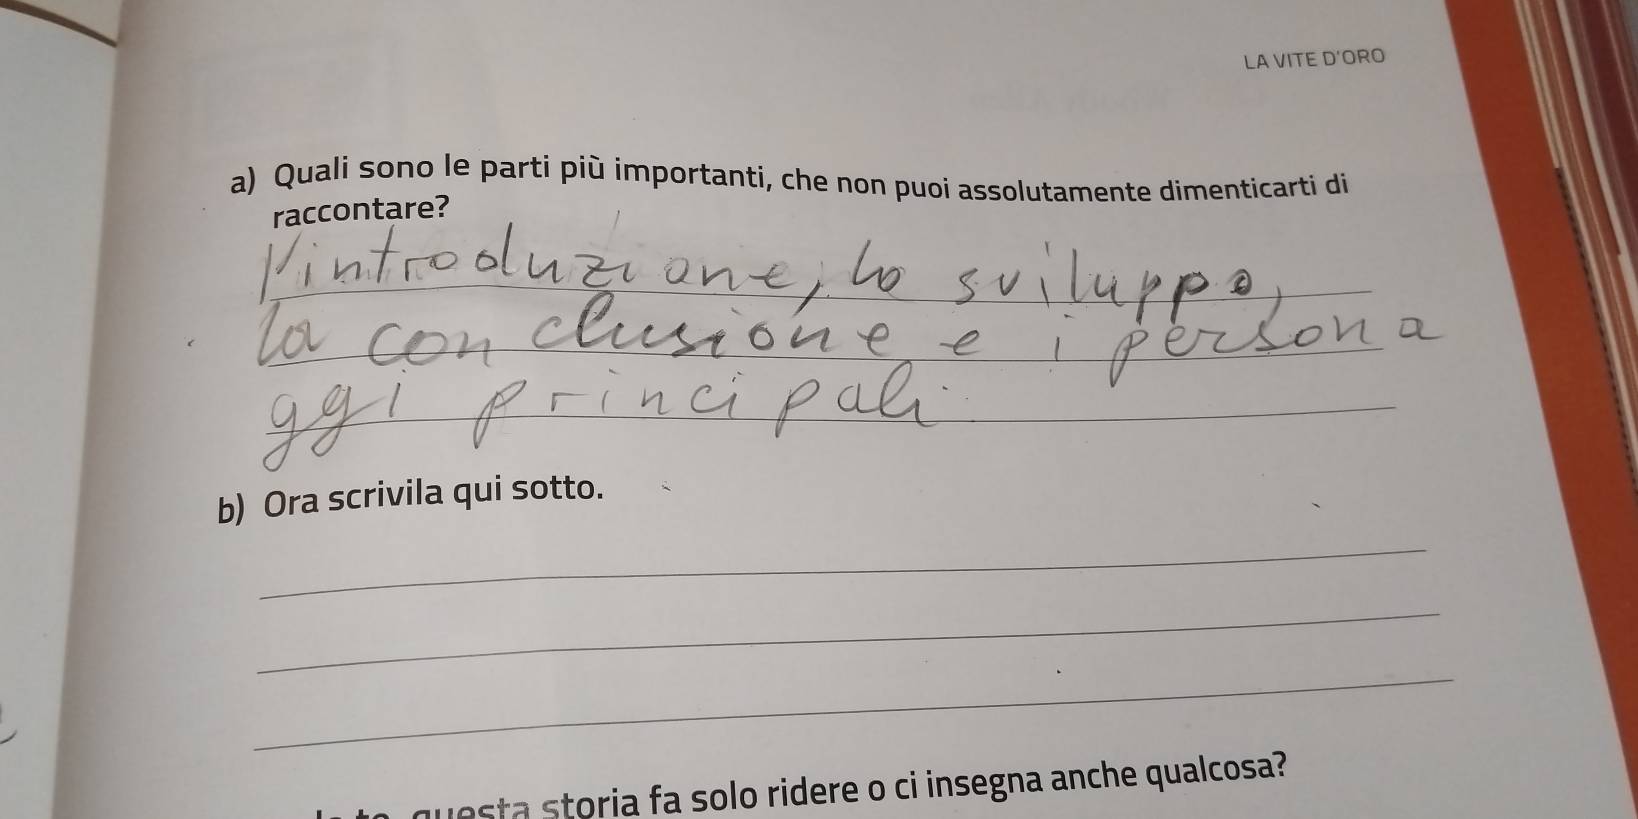 LA VITE D'ORO
a) Quali sono le parti più importanti, che non puoi assolutamente dimenticarti di
raccontare?
l'introduzione, lo sviluppo,
la conclusione e i persona
ggi principali.
b) Ora scrivila qui sotto.
questa storia fa solo ridere o ci insegna anche qualcosa?